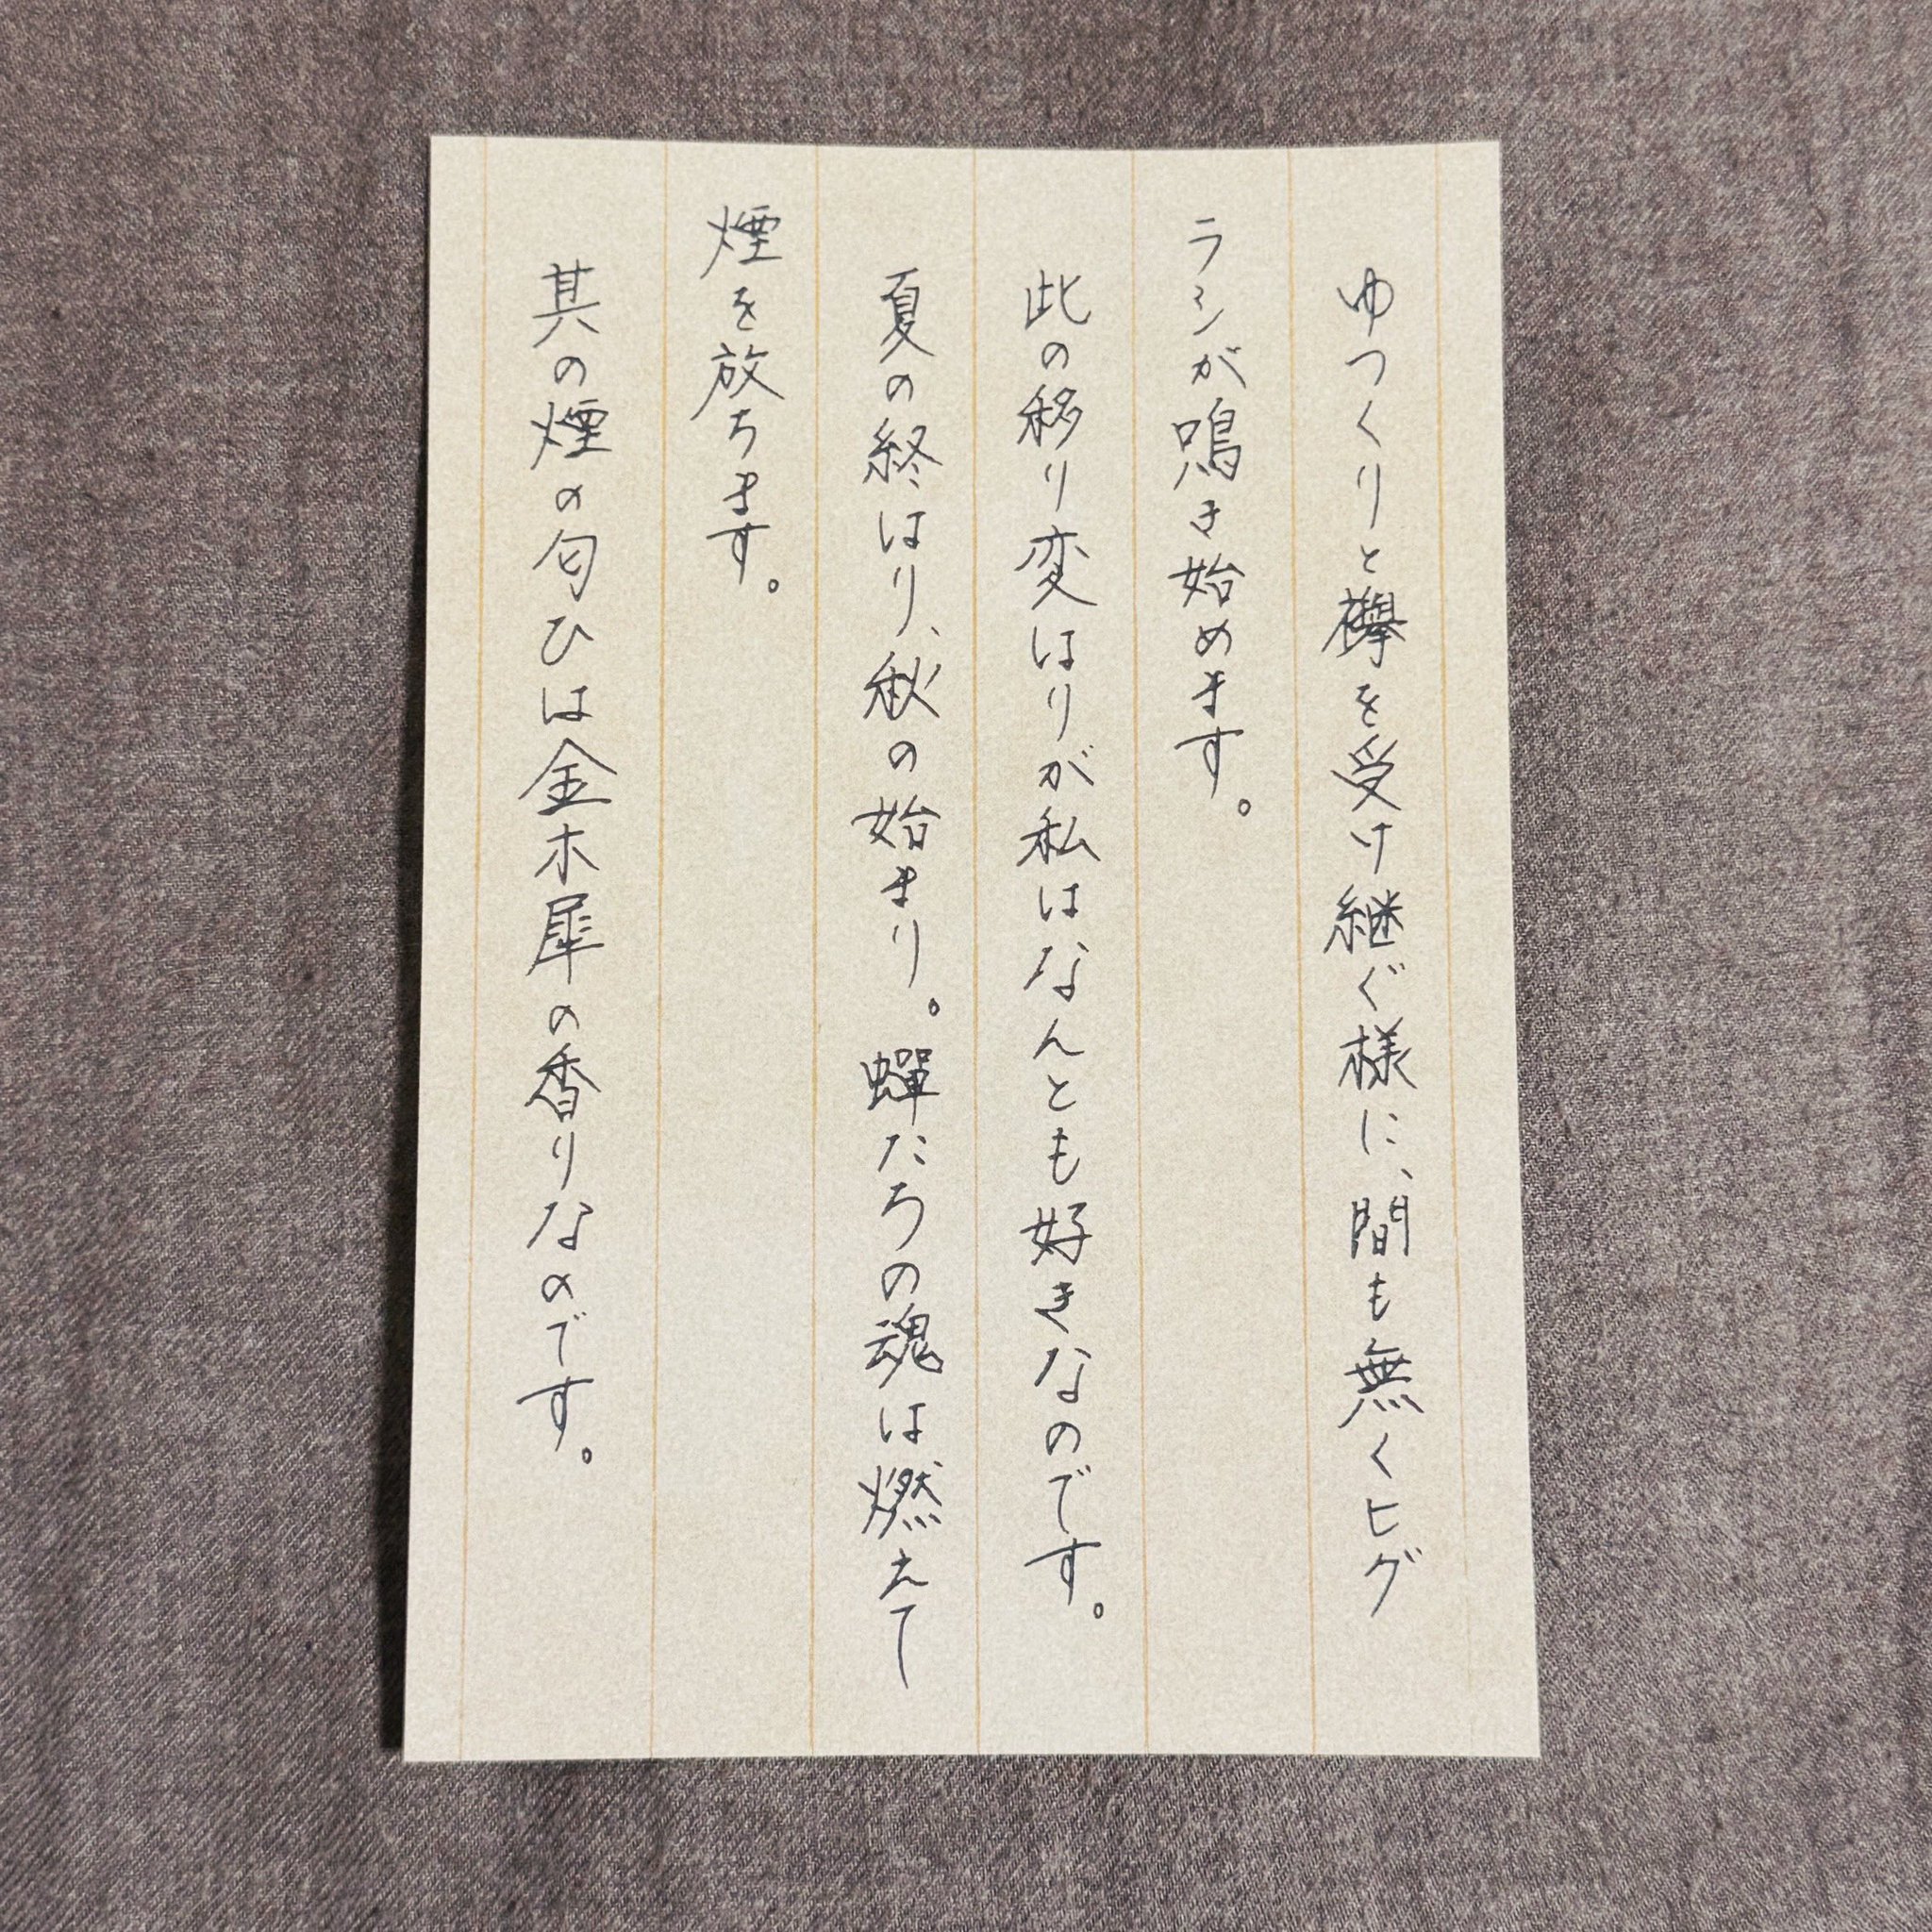 ゆつくりと襷を受け継ぐ様に、間も無くヒグ
ラシが鳴き始めます。
此の移り変はりが私はなんとも好きなのです。
夏の終はり、秋の始まり。蟬たちの魂は燃えて
煙を放ちます。
其の煙の匂ひは金木犀の香りなのです。